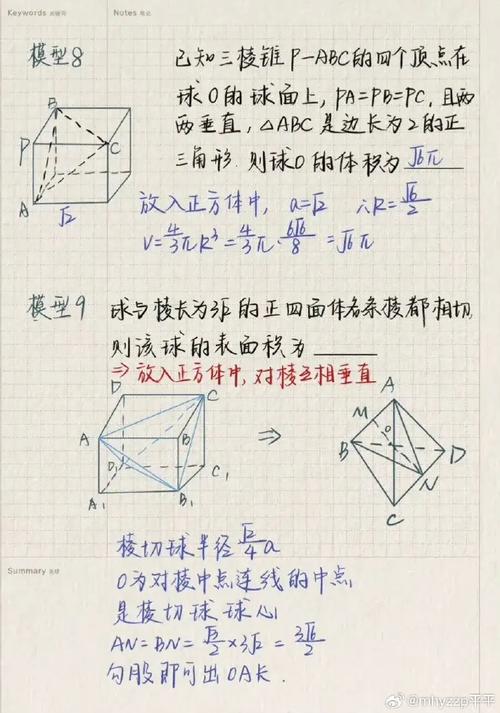 Keywords 关键词
Notes 笔记
模型8
已知三棱锥P-ABC的四个顶点在
球O的球面上,PA=PB=PC,且两
两垂直,△ABC是边长为2的正
三角形.则球O的体积为 √6π
B
P
C
A
√2
放入正方体中, a=√2 ∴R=√6/2
V=4/3πR³=4/3π·6√6/8=√6π
模型9
球与棱长为3√2的正四面体各条棱都相切,
则该球的表面积为
⇒ 放入正方体中,对棱互相垂直
D
C
A
B
D₁
C₁
A₁
B₁
⇒
A
M
O
B
D
N
C
棱切球半径√2/4a
O为对棱中点连线的中点
是棱切球球心
AN=BN=√3/2×3√2=3√6/2
勾股即可出OA长.
Summary 总结
@mhyzzp平平